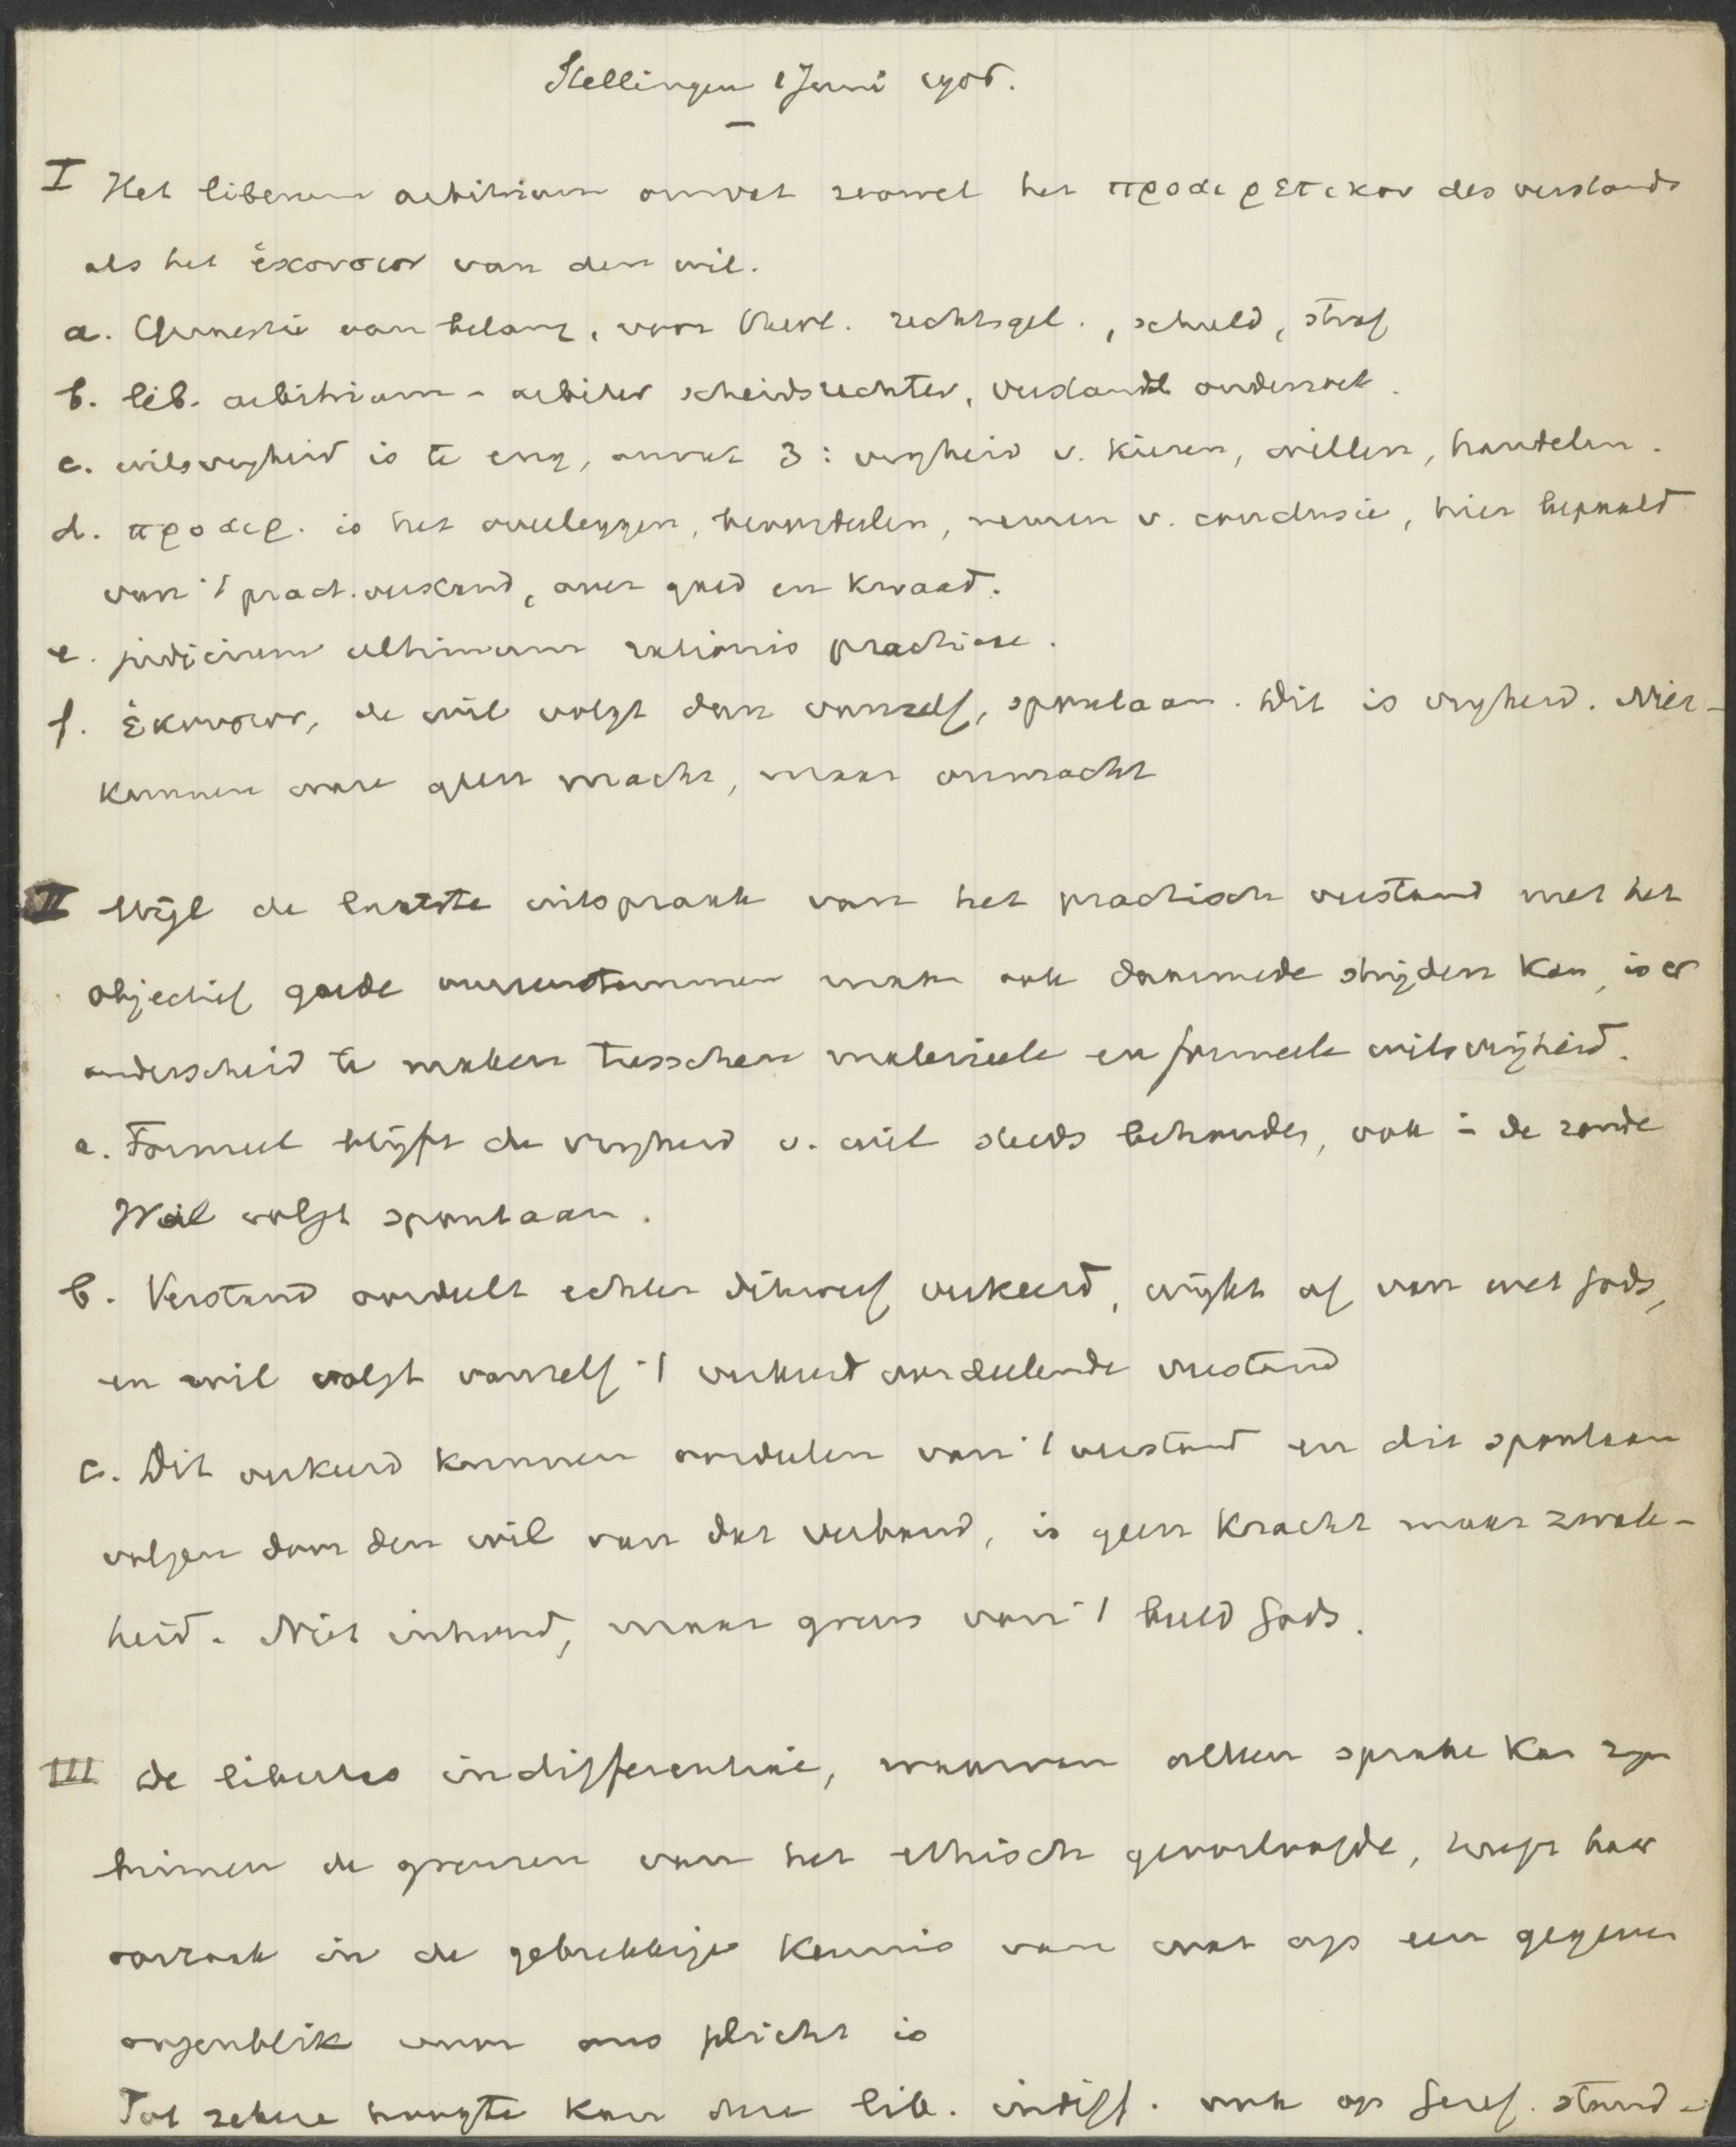 Stellingen 1 Juni 1905.
I Het liberum arbitrium omvat zoowel het προαιρετικον des verstands
als het ἑκουσιον van den wil.
a. Quaestie van belang, voor theol. rechtsgel., schuld, straf
b. lib. arbitrium - arbiter scheidsrechter, verstand onderzoek.
c. wilsvrijheid is te eng, omvat 3: vrijheid v. kiezen, willen, handelen.
d. προαιρ. is het overleggen, beoordeelen, nemen v. conclusie, hier bepaald
van 't pract. verstand, over goed en kwaad.
e. judicium ultimum rationis practicae.
f. ἑκουσιον, de wil volgt dan vanzelf, spontaan. Dit is vrijheid. Niet-
kunnen ware geen macht, maar onmacht
II Wijl de laatste uitspraak van het practisch verstand met het
objectief goede overeenstemmen maar ook daarmede strijden kan, is er
onderscheid te maken tusschen materieele en formeele wilsvrijheid.
a. Formeel blijft de vrijheid v. wil steeds behouden, ook in de zonde
Wil volgt spontaan.
b. Verstand oordeelt echter dikwerf verkeerd, wijkt af van wet Gods,
en wil volgt vanzelf 't verkeerd oordeelende verstand
c. Dit verkeerd kunnen oordeelen van 't verstand en dit spontaan
volgen door den wil van dat verband, is geen kracht maar zwak-
heid. Niet inhoud, maar grens van 't beeld Gods.
III De libertas indifferentiae, waarvan alleen sprake kan zijn
binnen de grenzen van het ethisch geoorloofde, heeft haar
oorzaak in de gebrekkige kennis van wat op een gegeven
oogenblik voor ons plicht is
Tot zekere hoogte kan deze lib. indiff. ook op Geref. stand-